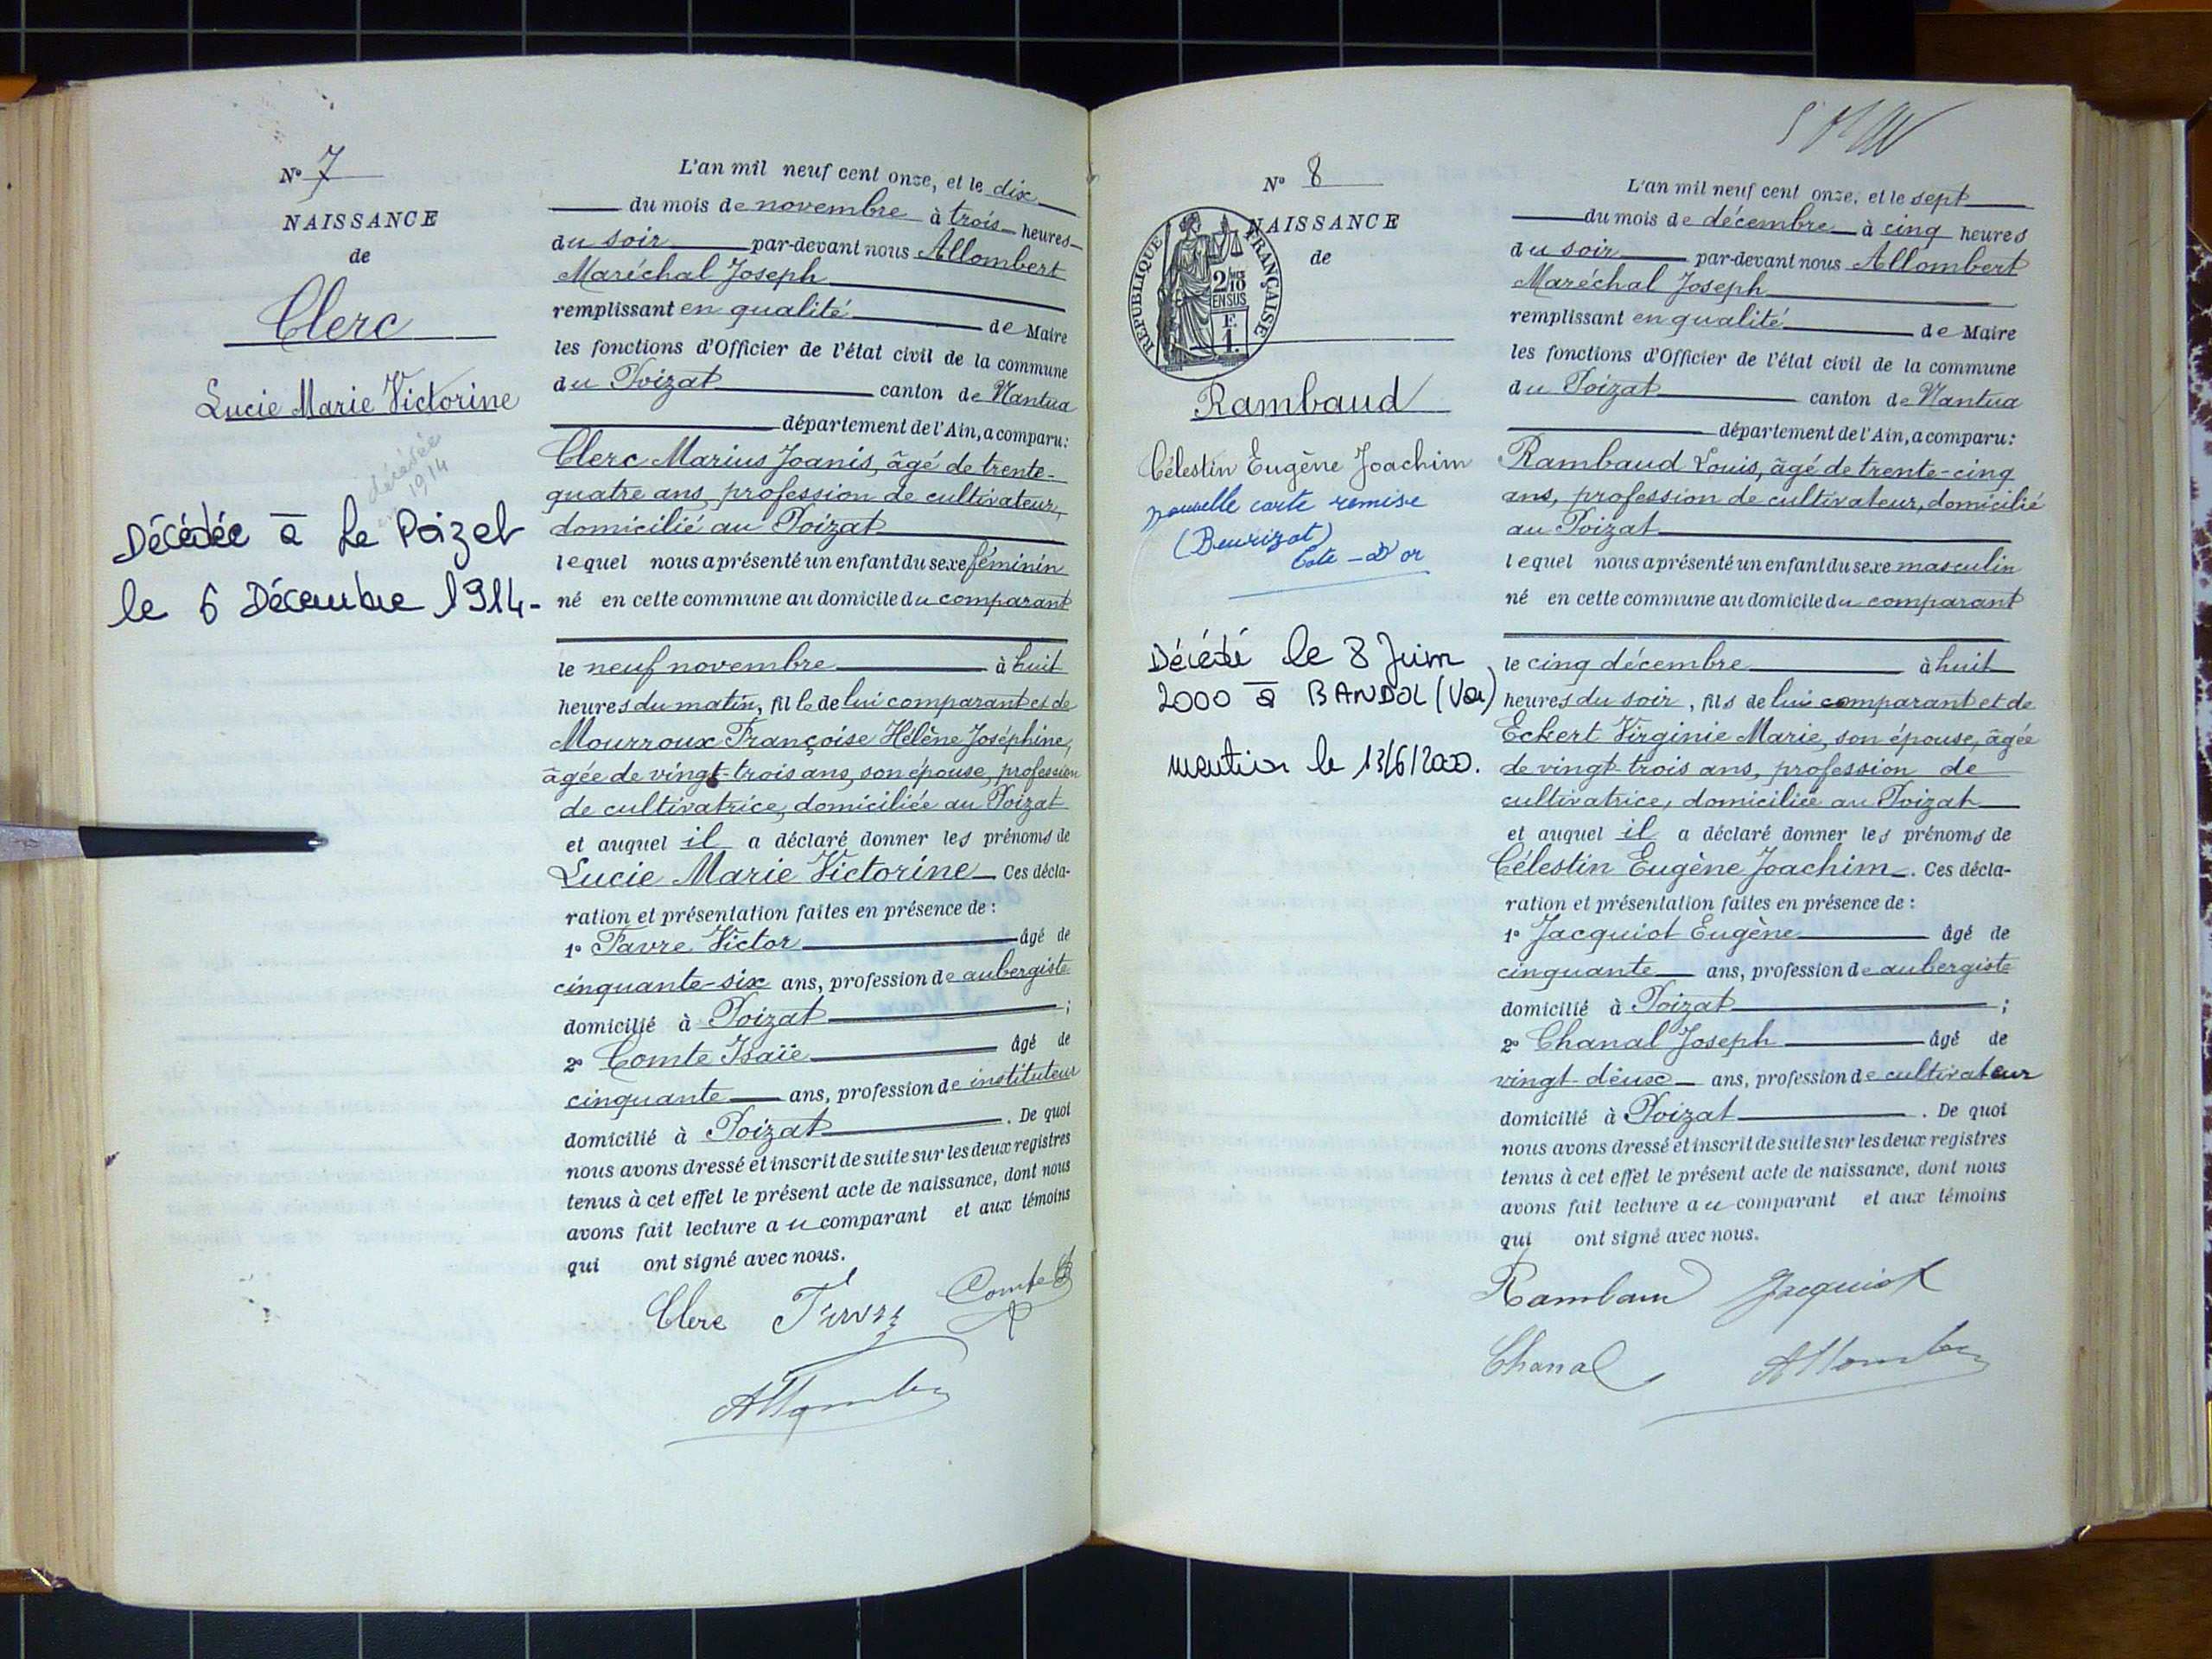 N° 7
NAISSANCE
de
Clerc
Lucie Marie Victorine
décédée
1914
Décédée à Le Poizat
le 6 Décembre 1914-
L'an mil neuf cent onze, et le dix
du mois de novembre à trois heures
du soir par-devant nous Allombert
Maréchal Joseph
remplissant en qualité de Maire
les fonctions d'Officier de l'état civil de la commune
du Poizat canton de Nantua
département de l'Ain, a comparu:
Clerc Marius Joanis, âgé de trente-
quatre ans, profession de cultivateur,
domicilié au Poizat
lequel nous a présenté un enfant du sexe féminin
né en cette commune au domicile du comparant
le neuf novembre à huit
heures du matin, fille de lui comparant et de
Mourroux Françoise Hélène Joséphine,
âgée de vingt-trois ans, son épouse, profession
de cultivatrice, domiciliée au Poizat
et auquel il a déclaré donner les prénoms de
Lucie Marie Victorine Ces décla-
ration et présentation faites en présence de :
1° Favre Victor âgé de
cinquante-six ans, profession de aubergiste
domicilié à Poizat ;
2° Comte Isaïe âgé de
cinquante ans, profession de instituteur
domicilié à Poizat . De quoi
nous avons dressé et inscrit de suite sur les deux registres
tenus à cet effet le présent acte de naissance, dont nous
avons fait lecture au comparant et aux témoins
qui ont signé avec nous.
Clerc Favre Comte
Allombert
N° 8
NAISSANCE
de
REPUBLIQUE FRANÇAISE
2/10
EN SUS
E.
1.
Rambaud
Célestin Eugène Joachim
nouvelle carte remise
(Beurizot)
Côte-d'or
Décédé le 8 Juin
2000 à BANDOL (Var)
mention le 13/6/2000.
L'an mil neuf cent onze, et le sept
du mois de décembre à cinq heures
du soir par-devant nous Allombert
Maréchal Joseph
remplissant en qualité de Maire
les fonctions d'Officier de l'état civil de la commune
du Poizat canton de Nantua
département de l'Ain, a comparu:
Rambaud Louis, âgé de trente-cinq
ans, profession de cultivateur, domicilié
au Poizat
lequel nous a présenté un enfant du sexe masculin
né en cette commune au domicile du comparant
le cinq décembre à huit
heures du soir, fils de lui comparant et de
Eckert Virginie Marie, son épouse, âgée
de vingt-trois ans, profession de
cultivatrice, domiciliée au Poizat
et auquel il a déclaré donner les prénoms de
Célestin Eugène Joachim. Ces décla-
ration et présentation faites en présence de :
1° Jacquiot Eugène âgé de
cinquante ans, profession de aubergiste
domicilié à Poizat ;
2° Chanal Joseph âgé de
vingt-deux ans, profession de cultivateur
domicilié à Poizat . De quoi
nous avons dressé et inscrit de suite sur les deux registres
tenus à cet effet le présent acte de naissance, dont nous
avons fait lecture au comparant et aux témoins
qui ont signé avec nous.
Rambaud Jacquiot
Chanal Allombert